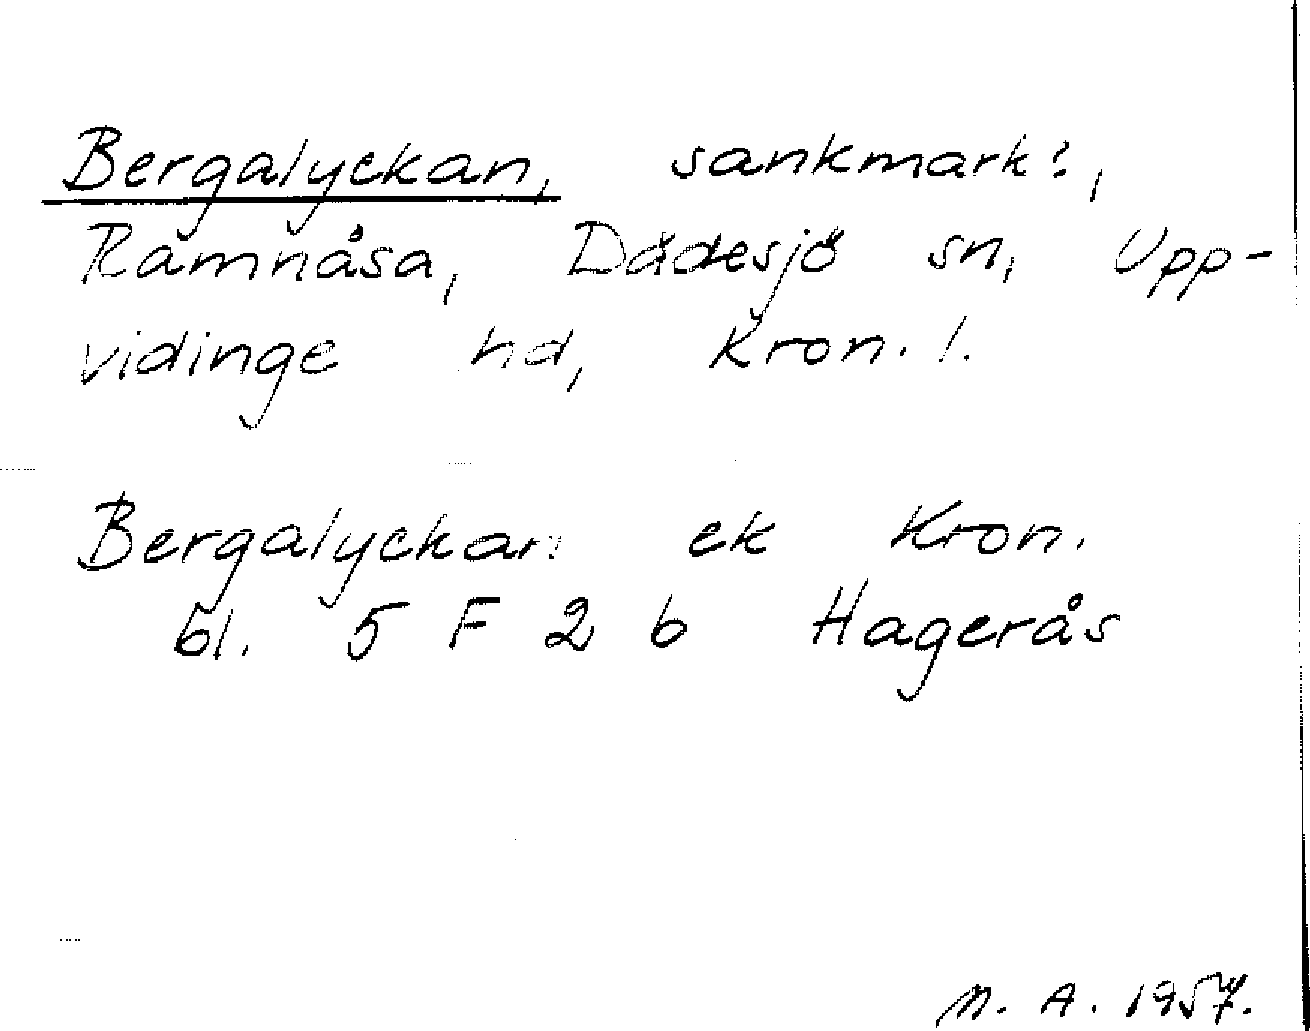 Bergalyckan, sankmark?,
Ramnåsa, Dädesjö sn, Upp-
vidinge hd, Kron. l.
Bergalyckan ek Kron.
bl. 5 F 2 b Hagerås
M. A. 1957.